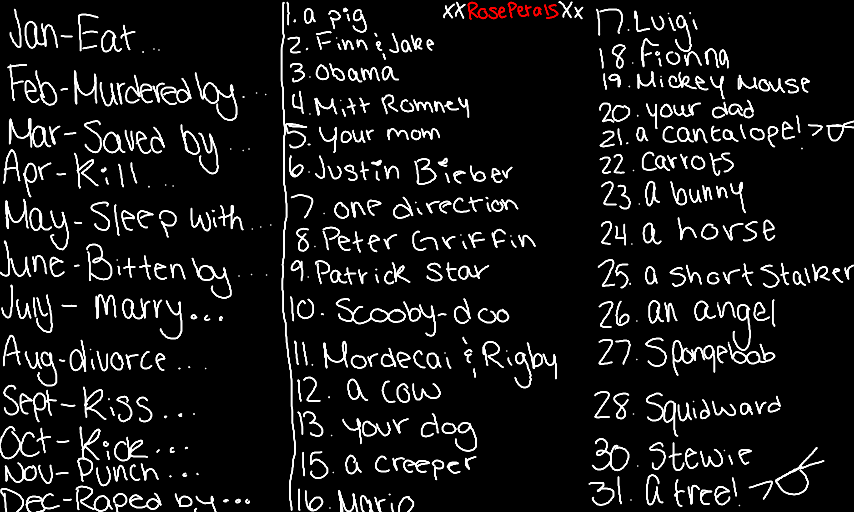 Jan-Eat...
Feb-Murdered by...
Mar-Saved by...
Apr-Kill...
May-Sleep with...
June-Bitten by...
July-marry...
Aug-divorce...
Sept-Kiss...
Oct-Kick...
Nov-Punch...
Dec-Raped by...
1. a pig
2. Finn & Jake
3. Obama
4. Mitt Romney
5. your mom
6. Justin Bieber
7. one direction
8. Peter Griffin
9. Patrick Star
10. Scooby-doo
11. Mordecai & Rigby
12. a cow
13. your dog
15. a creeper
16. Mario
xXRosePetalsXx
17. Luigi
18. Fionna
19. Mickey Mouse
20. your dad
21. a cantalope!
22. carrots
23. a bunny
24. a horse
25. a short Stalker
26. an angel
27. Spongebob
28. Squidward
30. Stewie
31. A tree!